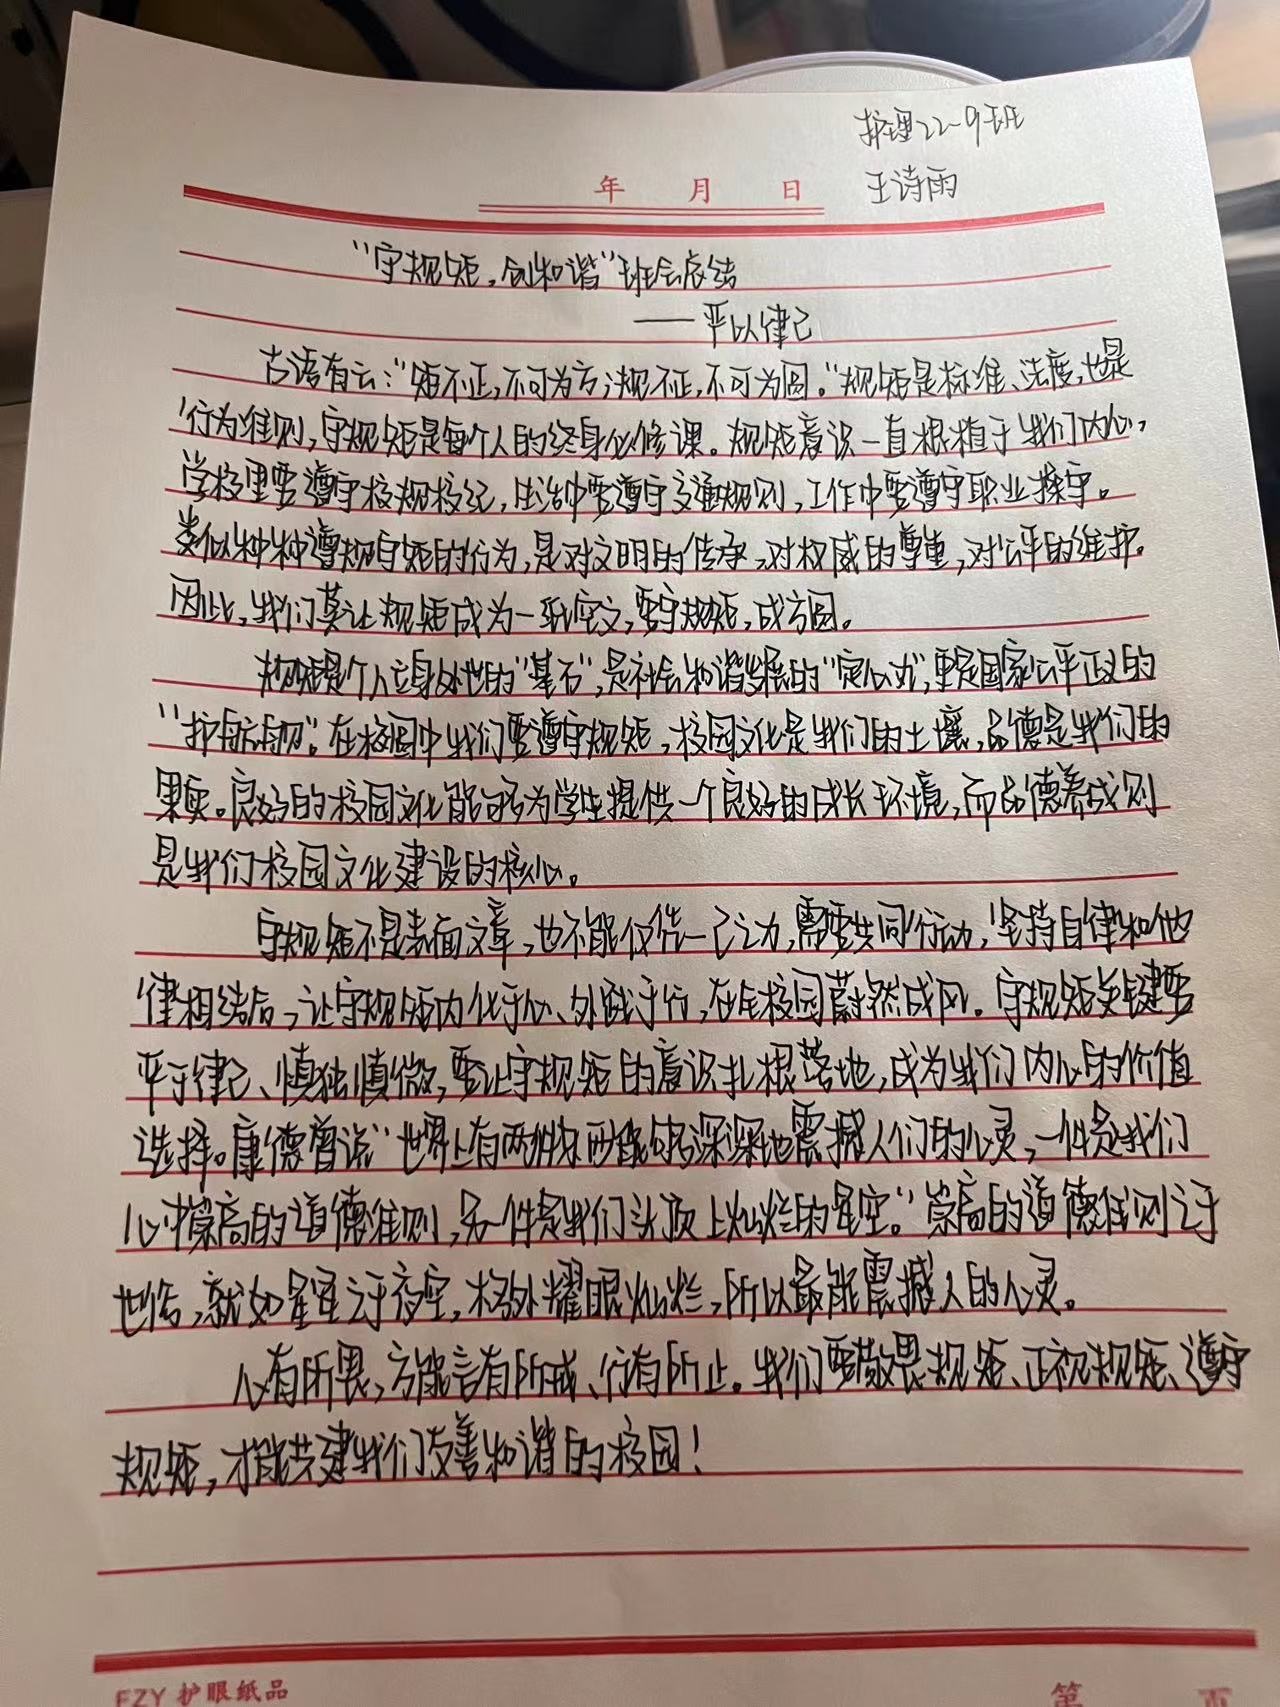 护理22-9班
年 月 日 王诗雨
“守规矩，创和谐”班会总结
——严以律己
古语有云：“矩不正，不可为方；规不正，不可为圆。”规矩是标准、法度，也是
行为准则，守规矩是每个人的终身必修课。规矩意识一直根植于我们内心，
学校里要遵守校规校纪，生活中要遵守交通规则，工作中要遵守职业操守。
类似种种遵规守矩的行为，是对文明的传承，对权威的尊重，对公平的维护。
因此，我们莫让规矩成为一纸空文，要守规矩，成方圆。
规矩是个人立身处世的“基石”，是社会和谐发展的“定心丸”，更是国家公平正义的
“护航舰”。在校园中我们要遵守规矩，校园文化是我们的土壤，品德是我们的
果实。良好的校园文化能够为学生提供一个良好的成长环境，而品德养成则
是我们校园文化建设的核心。
守规矩不是表面文章，也不能仅凭一己之力，需要共同行动，坚持自律和他
律相结合，让守规矩内化于心、外践于行，在全校园蔚然成风。守规矩关键要
严于律己、慎独慎微，要让守规矩的意识扎根落地，成为我们内心的价值
选择。康德曾说“世界上有两件东西能够深深地震撼人们的心灵，一件是我们
心中崇高的道德准则，另一件是我们头顶上灿烂的星空。”崇高的道德准则之于
世俗，就如星星之于夜空，格外耀眼灿烂，所以最能震撼人的心灵。
心有所畏，方能言有所戒、行有所止。我们要敬畏规矩、正视规矩、遵守
规矩，才能共建我们友善和谐的校园！
EZY 护眼纸品 第 页